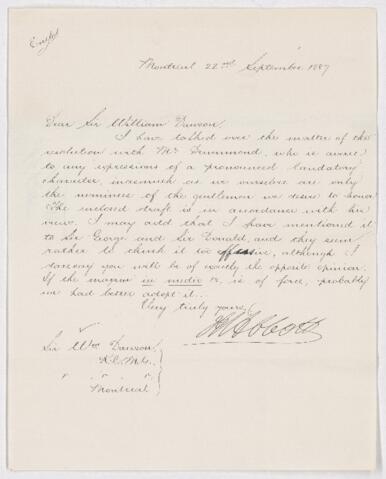 Montreal 22nd September 1887
Dear Sir William Dawson,
I have talked over the matter of the
resolution with Mr Drummond, who is averse
to any expressions of a pronounced laudatory
character, inasmuch as we ourselves are only
the nominees of the gentlemen we desire to honor
The inclosed draft is in accordance with his
view. I may add that I have mentioned it
to Sir George and Sir Donald, and they seem
rather to think it too effusive, although I
daresay you will be of exactly the opposite opinion.
If the maxim in medio &c is of force, probably
we had better adopt it..
Very truly yours,
JJC Abbott
Sir Wm Dawson,
K.C.M.G.
Montreal